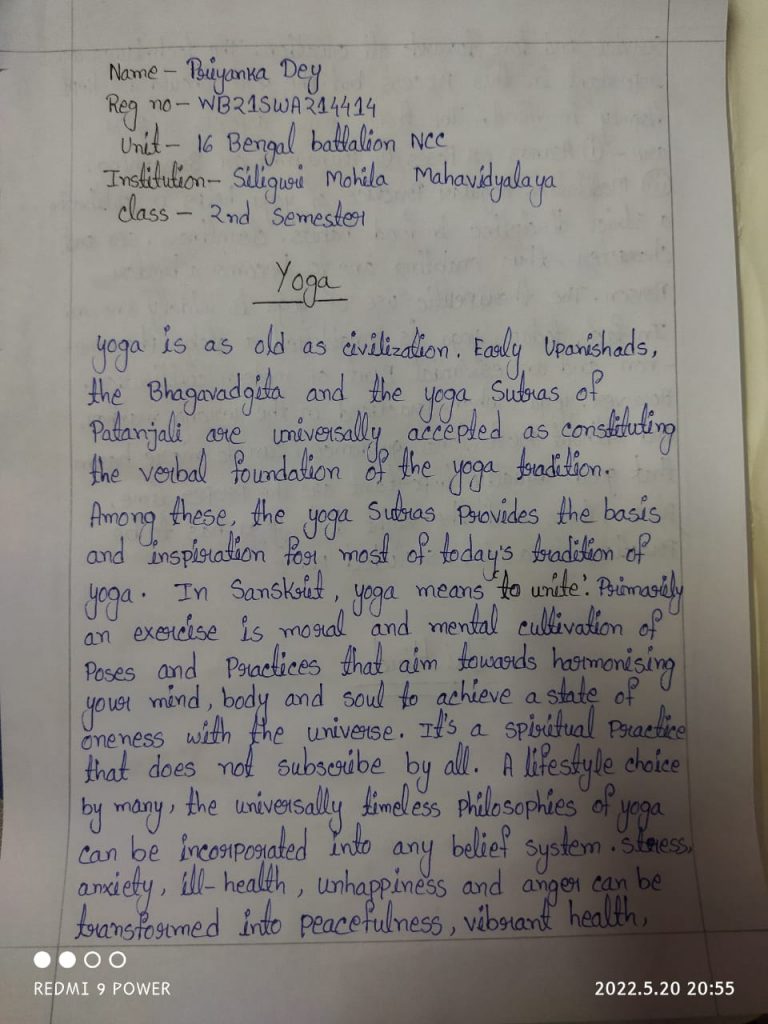 Name - Priyanka Dey
Reg no - WB21SWA214414
Unit - 16 Bengal battalion NCC
Institution - Siliguri Mohila Mahavidyalaya
class - 2nd Semester
Yoga
yoga is as old as civilization. Early Upanishads,
the Bhagavadgita and the yoga Sutras of
Patanjali are universally accepted as constituting
the verbal foundation of the yoga tradition.
Among these, the yoga Sutras Provides the basis
and inspiration for most of today's tradition of
yoga. In Sanskrit, yoga means 'to unite'. Primarily
an exercise is moral and mental cultivation of
Poses and Practices that aim towards harmonising
your mind, body and soul to achieve a state of
oneness with the universe. It's a spiritual Practice
that does not subscribe by all. A lifestyle choice
by many, the universally timeless Philosophies of yoga
can be incorporated into any belief system. stress,
anxiety, ill-health, unhappiness and anger can be
transformed into peacefulness, vibrant health,
REDMI 9 POWER
2022.5.20 20:55